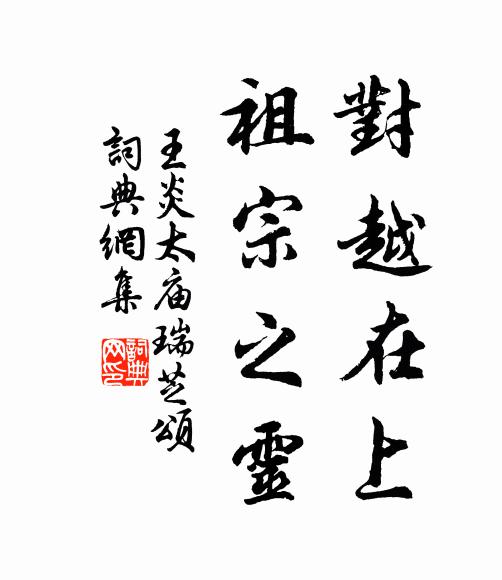 對越在上
祖宗之靈
王炎太庙瑞芝頌
詞典網集
詞典網印